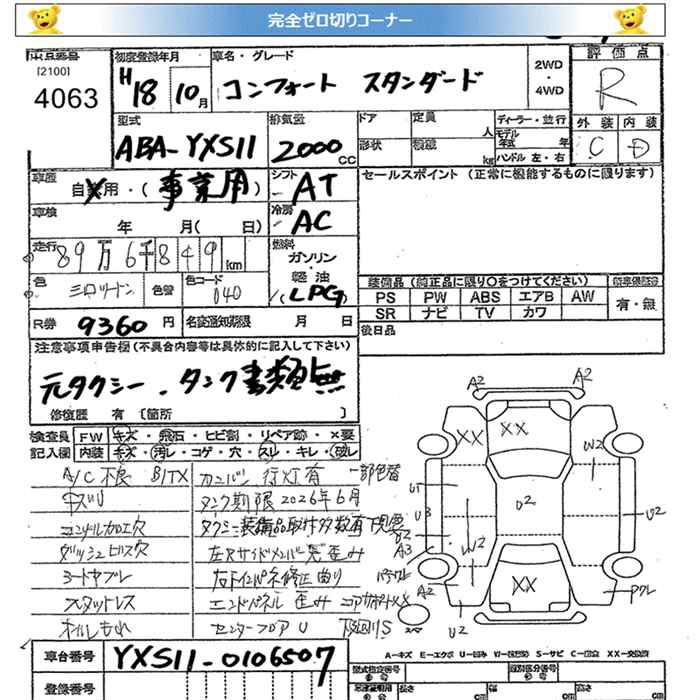 完全ゼロ切りコーナー
出品番号
[2100]
4063
初度登録年月
H18 10月
車名・グレード
コンフォート スタンダード
2WD
・
4WD
評価点
R
型式
ABA-YXS11
排気量
2000 CC
ドア
形状
定員 人
積載 kg
ディーラー・並行
モデル年式 年
ハンドル 左・右
外装 内装
C D
車歴
自家用・(事業用)
シフト
AT
セールスポイント (正常に機能するものに限ります)
車検
年 月( 日)
冷房
AC
走行
89万6千849 km
燃料
ガソリン
・
軽油
(LPG)
色
色替
色コード
040
装備品(純正品に限り○をつけてください)
PS PW ABS エアB AW
SR ナビ TV カワ
有・無
R券 9360 円
名変通知期限 月 日
後日品
注意事項申告欄(不具合内容等は具体的に記入して下さい)
元タクシー、タンク書類無
修復歴 有 [箇所 ]
検査員 FW キズ・飛石・ヒビ割・リペア跡・×要
記入欄 内装 キズ・汚レ・コゲ・穴・スレ・キレ・破レ
A/C不良
行灯有 一部色替
タンク期限2026年6月
タクシー装備品取付多数有 下廻
ダッシュビス穴
シートヤブレ
スタットレス
オイルもれ
エンドパネル歪み コアサポートXX
センターフロアU 下廻りS
A2 A2
XX XX
W2
U1
U3
U2
U2
A3
W2
A2
XX
U2
スペ
A-キズ E-エクボ U-凹み W-(板金跡) S-サビ C-腐食 XX-交換済
車台番号 YXS11-0106507
登録番号
型式指定番号
類別区分番号
長さ cm
幅 cm
高さ cm